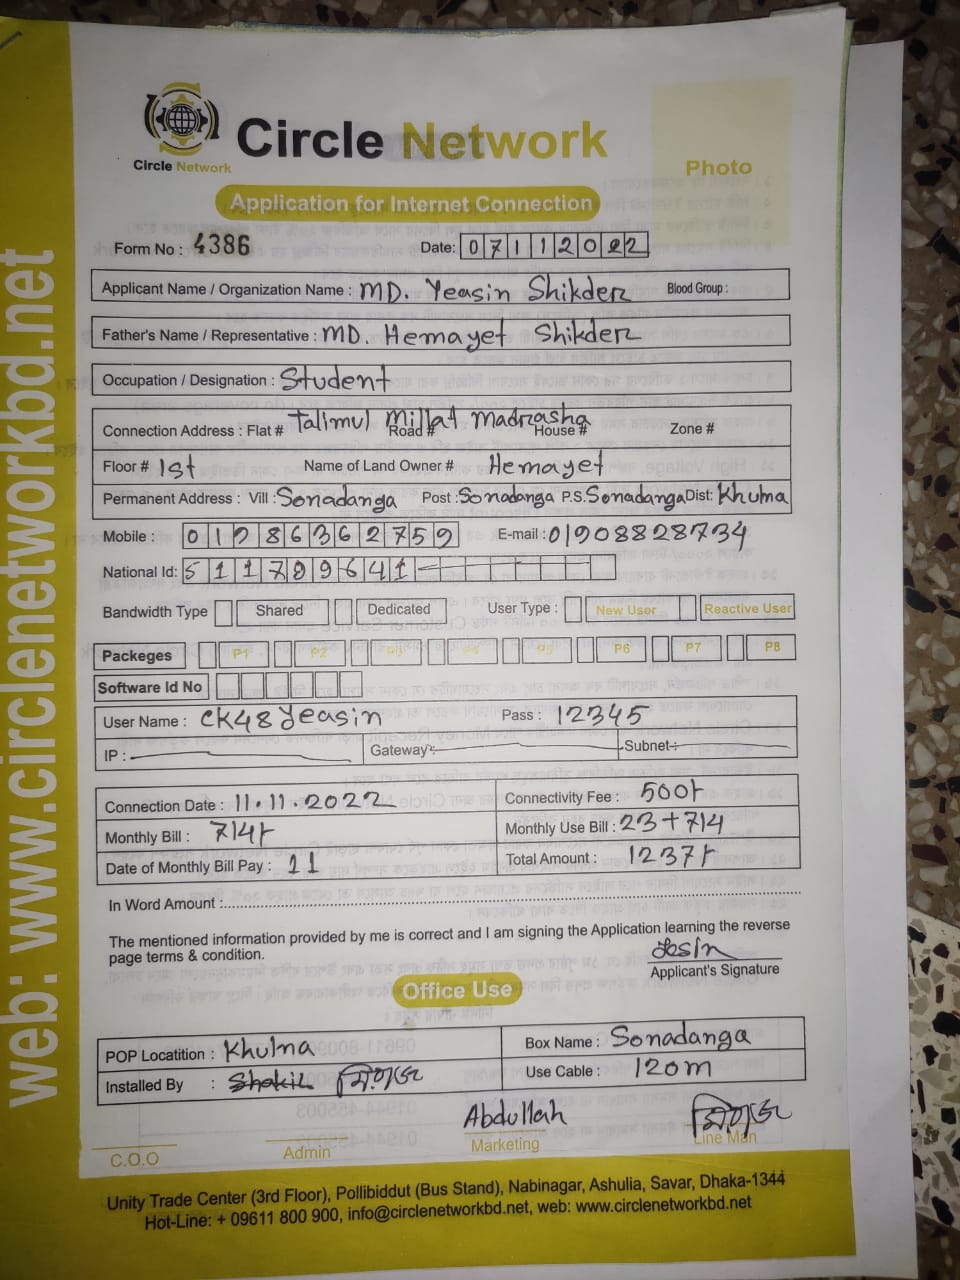 Circle Network
Circle Network
Photo
Application for Internet Connection
Form No : 4386
Date: 07112022
Applicant Name / Organization Name : MD. Yeasin Shikder Blood Group :
Father's Name / Representative : MD. Hemayet Shikder
Occupation / Designation : Student
Connection Address : Flat # Talimul Millat Madrasha Road # House # Zone #
Floor # 1st Name of Land Owner # Hemayet
Permanent Address : Vill : Sonadanga Post : Sonadanga P.S. Sonadanga Dist: Khulna
Mobile : E-mail : 01908828734
National Id:
Bandwidth Type Shared Dedicated User Type : New User Reactive User
Packeges P1 P2 P3 P4 P5 P6 P7 P8
Software Id No
User Name : CK48Yeasin Pass : 12345
IP : Gateway : Subnet :
Connection Date : 11.11.2022 Connectivity Fee : 500/-
Monthly Bill : 714/- Monthly Use Bill : 23+714
Date of Monthly Bill Pay : 11 Total Amount : 1237/-
In Word Amount :
The mentioned information provided by me is correct and I am signing the Application learning the reverse
page terms & condition.
Applicant's Signature
Office Use
POP Locatition : Khulna Box Name : Sonadanga
Installed By : Shakil Use Cable : 120m
Abdullah
C.O.O Admin Marketing Line Man
Unity Trade Center (3rd Floor), Pollibiddut (Bus Stand), Nabinagar, Ashulia, Savar, Dhaka-1344
Hot-Line: + 09611 800 900, info@circlenetworkbd.net, web: www.circlenetworkbd.net
web: www.circlenetworkbd.net